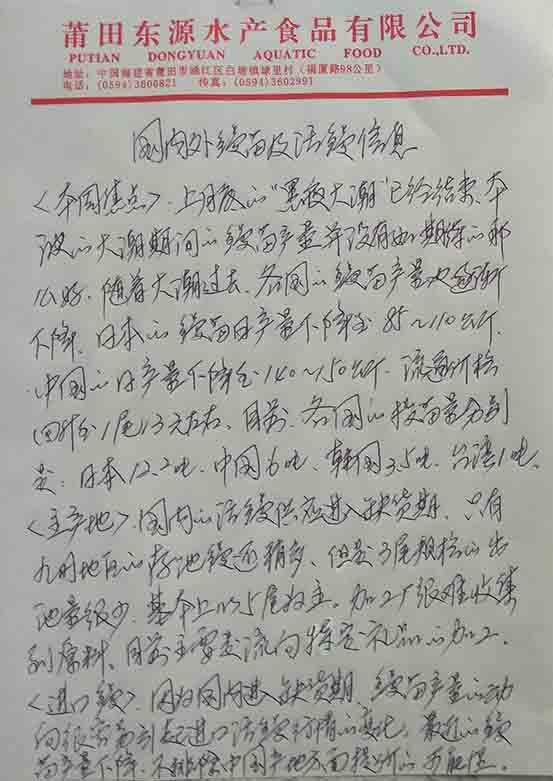 莆田东源水产食品有限公司
PUTIAN DONGYUAN AQUATIC FOOD CO.,LTD.
地址：中国福建省莆田市涵江区白塘镇埭里村（福厦路98公里）
电话：(0594)3600821 传真：(0594)3602991
国内外鳗苗及活鳗信息
<本周焦点>. 上月底的"黑夜大潮"已经结束、本
波的大潮期间的鳗苗产量并没有如期待的那
么好. 随着大潮过去、各国的鳗苗产量也逐渐
下降. 日本的鳗苗日产量下降至 85~110公斤.
中国的日产量下降至140~150公斤. 流通价格
回升至1尾13元左右、目前、各国的投苗量分别
是：日本12.2吨、中国6吨、韩国3.5吨、台湾1吨、
<主产地>. 国内的活鳗供应进入缺货期、只有
九州地区的存池鳗还稍多、但是3尾规格的出
池量很少、基本上以5尾为主。加工厂很难收集
到原料、目前主要是流向特定礼品的加工.
<进口鳗>. 因为国内进入缺货期、鳗苗产量的动
向很容易引起进口活鳗行情的变化。最近的鳗
苗产量下降、不排除中国产地方面提价的可能性。